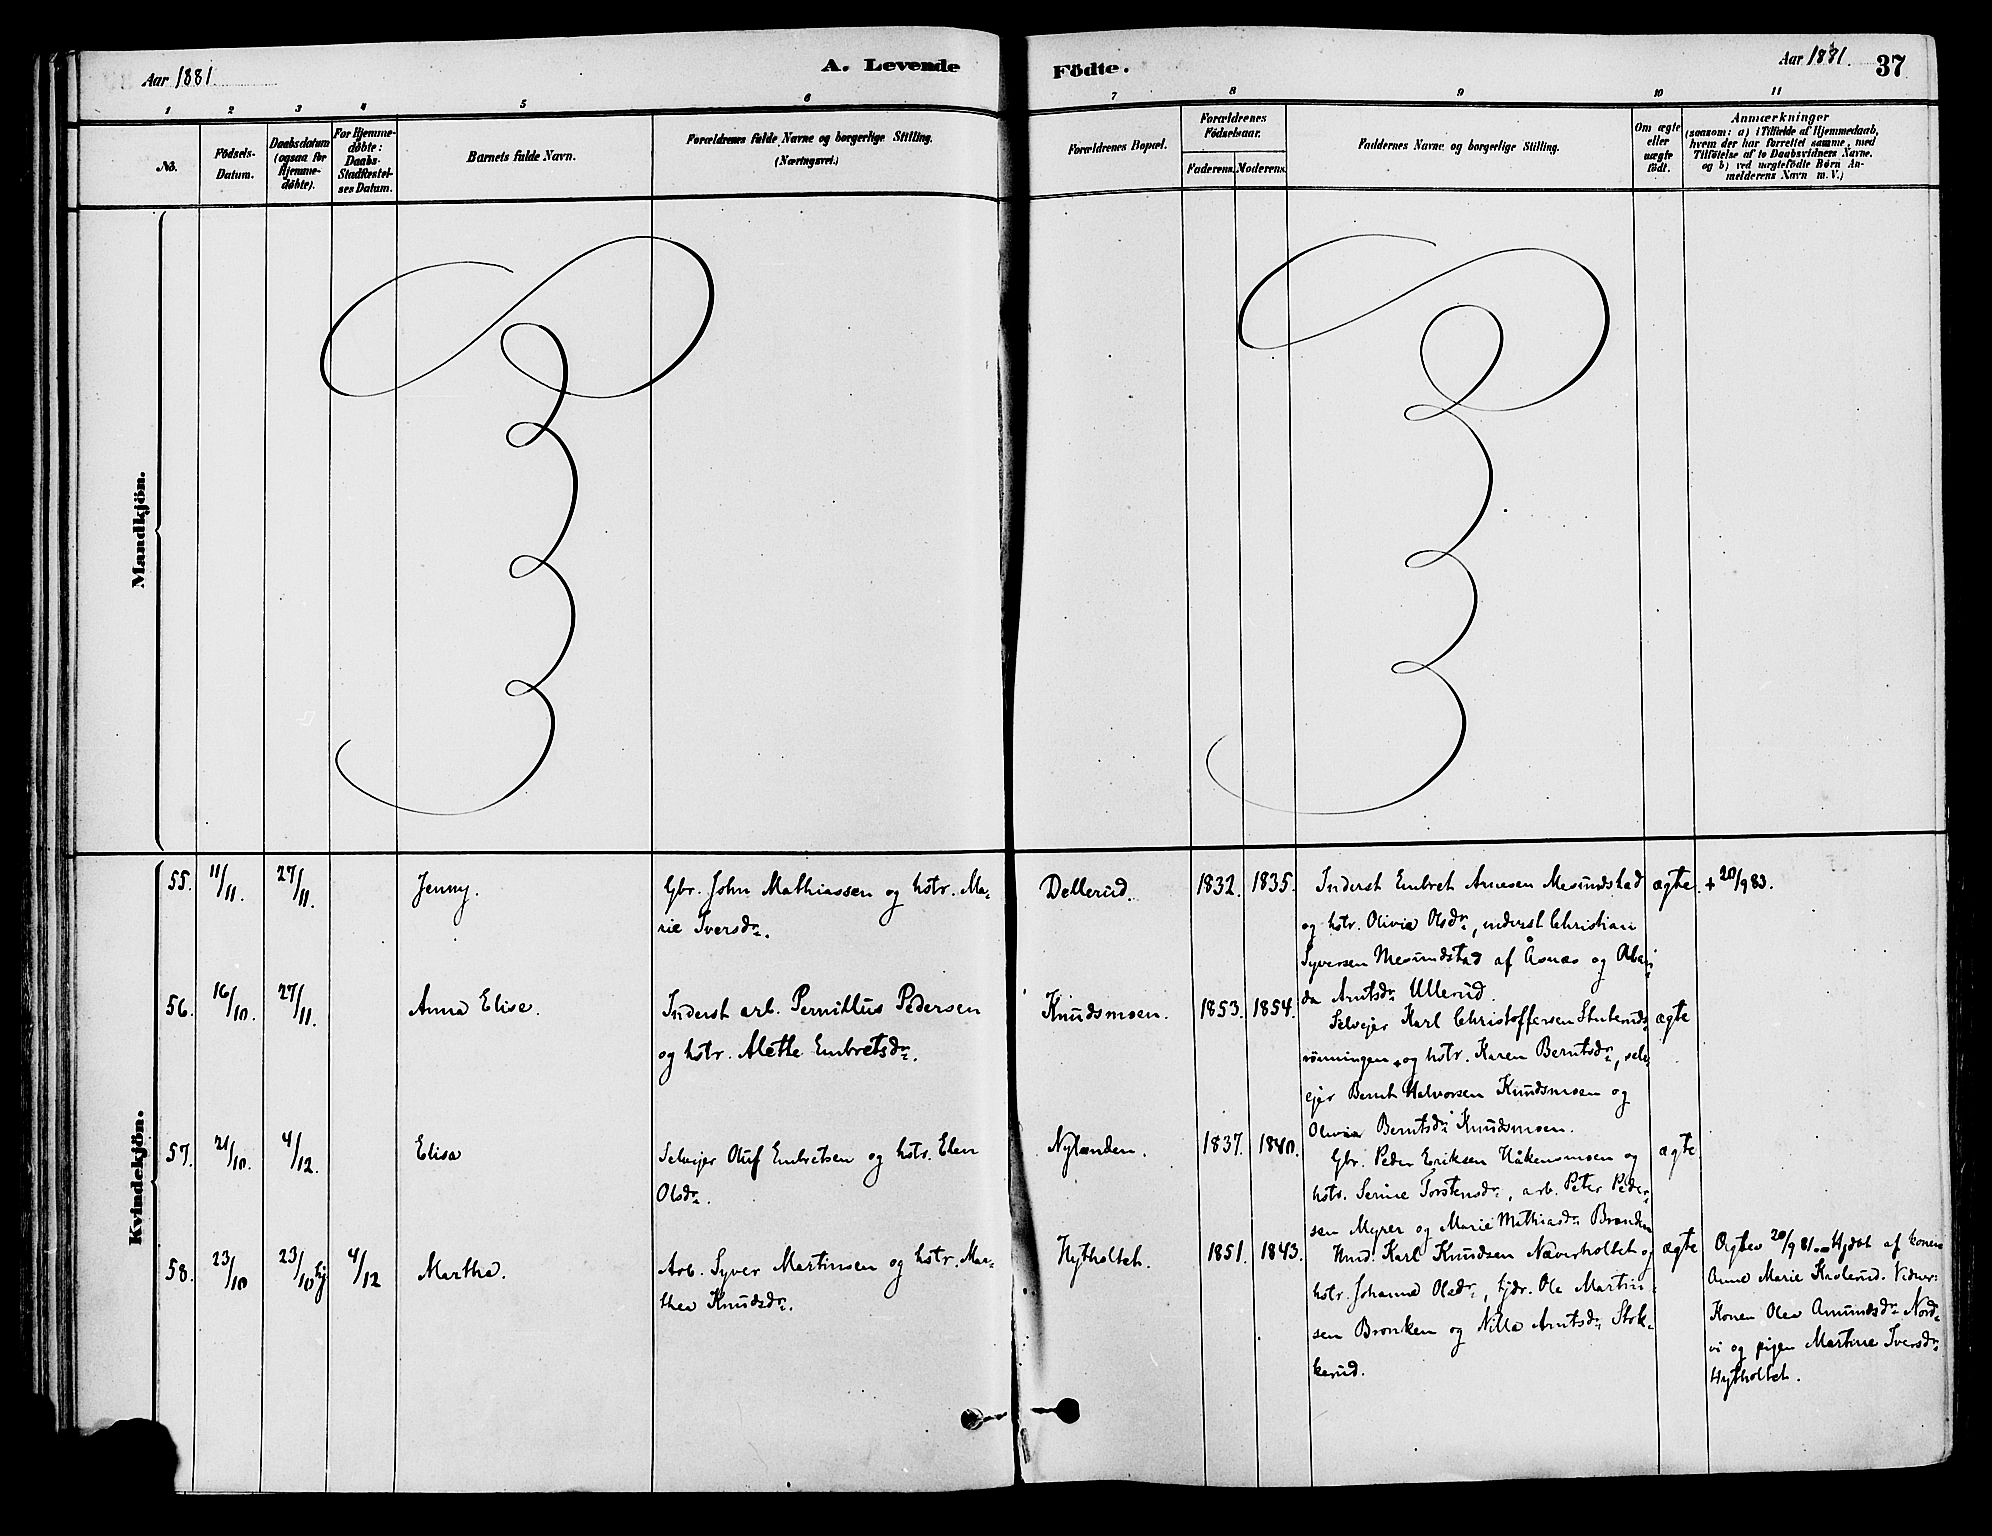 Aar 1881.
A. Levende
Födte.
Aar 1881.
37
1 2 3 4 5 6 7 8 9 10 11
No.
Födsels-
Datum.
Daabsdatum
(ogsaa for
Hjemme-
döbte).
For Hjemme-
döbte:
Daabs-
Stadfæstel-
ses Datum.
Barnets fulde Navn.
Forældrenes fulde Navne og borgerlige Stilling.
(Næringsvei.)
Forældrenes Bopæl.
Forældrenes
Födselsaar.
Faderens. Moderens.
Faddernes Navne og borgerlige Stilling.
Om ægte
eller
uægte
födt.
Anmærkninger
(saasom: a) i Tilfælde af Hjemmedaab,
hvem der har forrettet samme, med
Tilföielse af to Daabsvidners Navne.
og b) ved uægtefödte Börn An-
melderens Navn m. V.)
Mandkjön.
Kvindekjön.
55. 11/11. 27/11. Jenny.
Gbr. John Mathiassen og hstr. Ma-
rie Iversdr.
Dellerud. 1832. 1835.
Inderst Embret Arnesen Mesundstad
og hstr. Olivia Olsdr, inderst Christian
Syversen Mesundstad af Åsnæs og
da Arntsdr Ullerud.
ægte. + 20/9 83.
56. 16/10. 27/11. Anna Elise.
Inderst arb. Pernillus Pedersen
og hstr. Alette Embretsdr.
Knudsmoen. 1853. 1854.
Selvejer Karl Christoffersen
rönningen og hstr. Karen Berntsdr, selv-
ejer Bernt Halvorsen Knudsmoen og
Olivia Berntsdr Knudsmoen.
ægte
57. 21/10. 4/12. Elisa
Selvejer Oluf Embretsen og hstr. Elen
Olsdr.
Nylænden. 1837. 1840.
Gbr. Peder Eriksen Håkensmoen og
hstr. Serine Torstensdr, arb. Peter Peder-
sen Myrer og Marie Mathiasdr Brænden
ægte
58. 23/10 23/10 hj 4/12 Martha.
Arb. Syver Martinsen og hstr. Mar-
thea Knudsdr.
Hytholtet. 1851. 1843.
Karl Knudsen Næverholtet og
hstr. Johanna Olsdr, tjdr. Ole Martin-
sen Bronken og Nilla Arntsdr Stok-
kerud.
ægte
20/9 81. Hjdbt af konen
Anne Marie Kaalerud. Vidner:
Konen Olea Amundsdr Nord-
vi og pigen Martine Iversdr
Hytholtet.